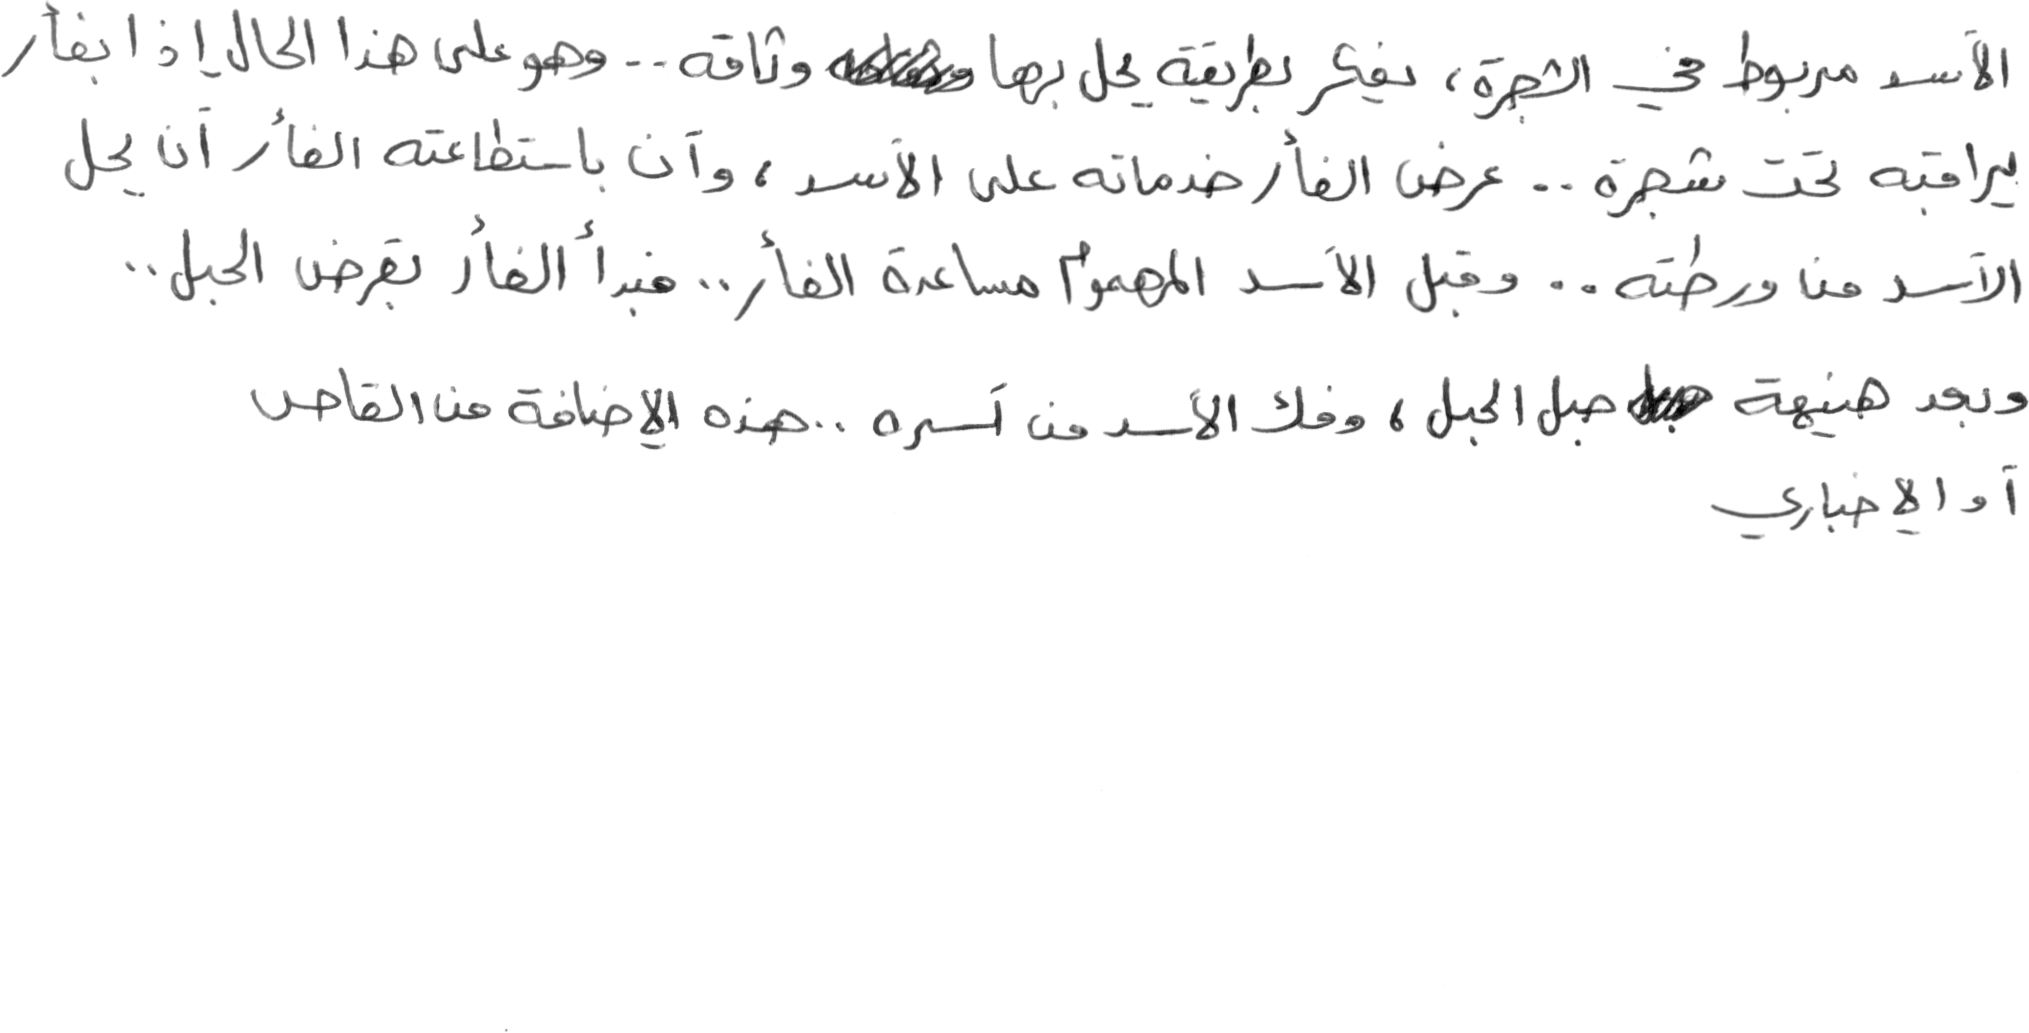 الأسد مربوط في الشجرة، يفكر بطريقة يحل بها وثاقه .. وهو على هذا الحال إذا بفأر
يراقبه تحت شجرة .. عرض الفأر خدماته على الأسد ، وأن باستطاعته الفأر أن يحل
الأسد من ورطته .. وقبل الأسد المهموم مساعدة الفأر .. فبدأ الفأر بقرض الحبل ..
وبعد هنيهة حبل الحبل ، وفك الأسد من أسره .. هذه الإضافة من القاص
أو الإخباري